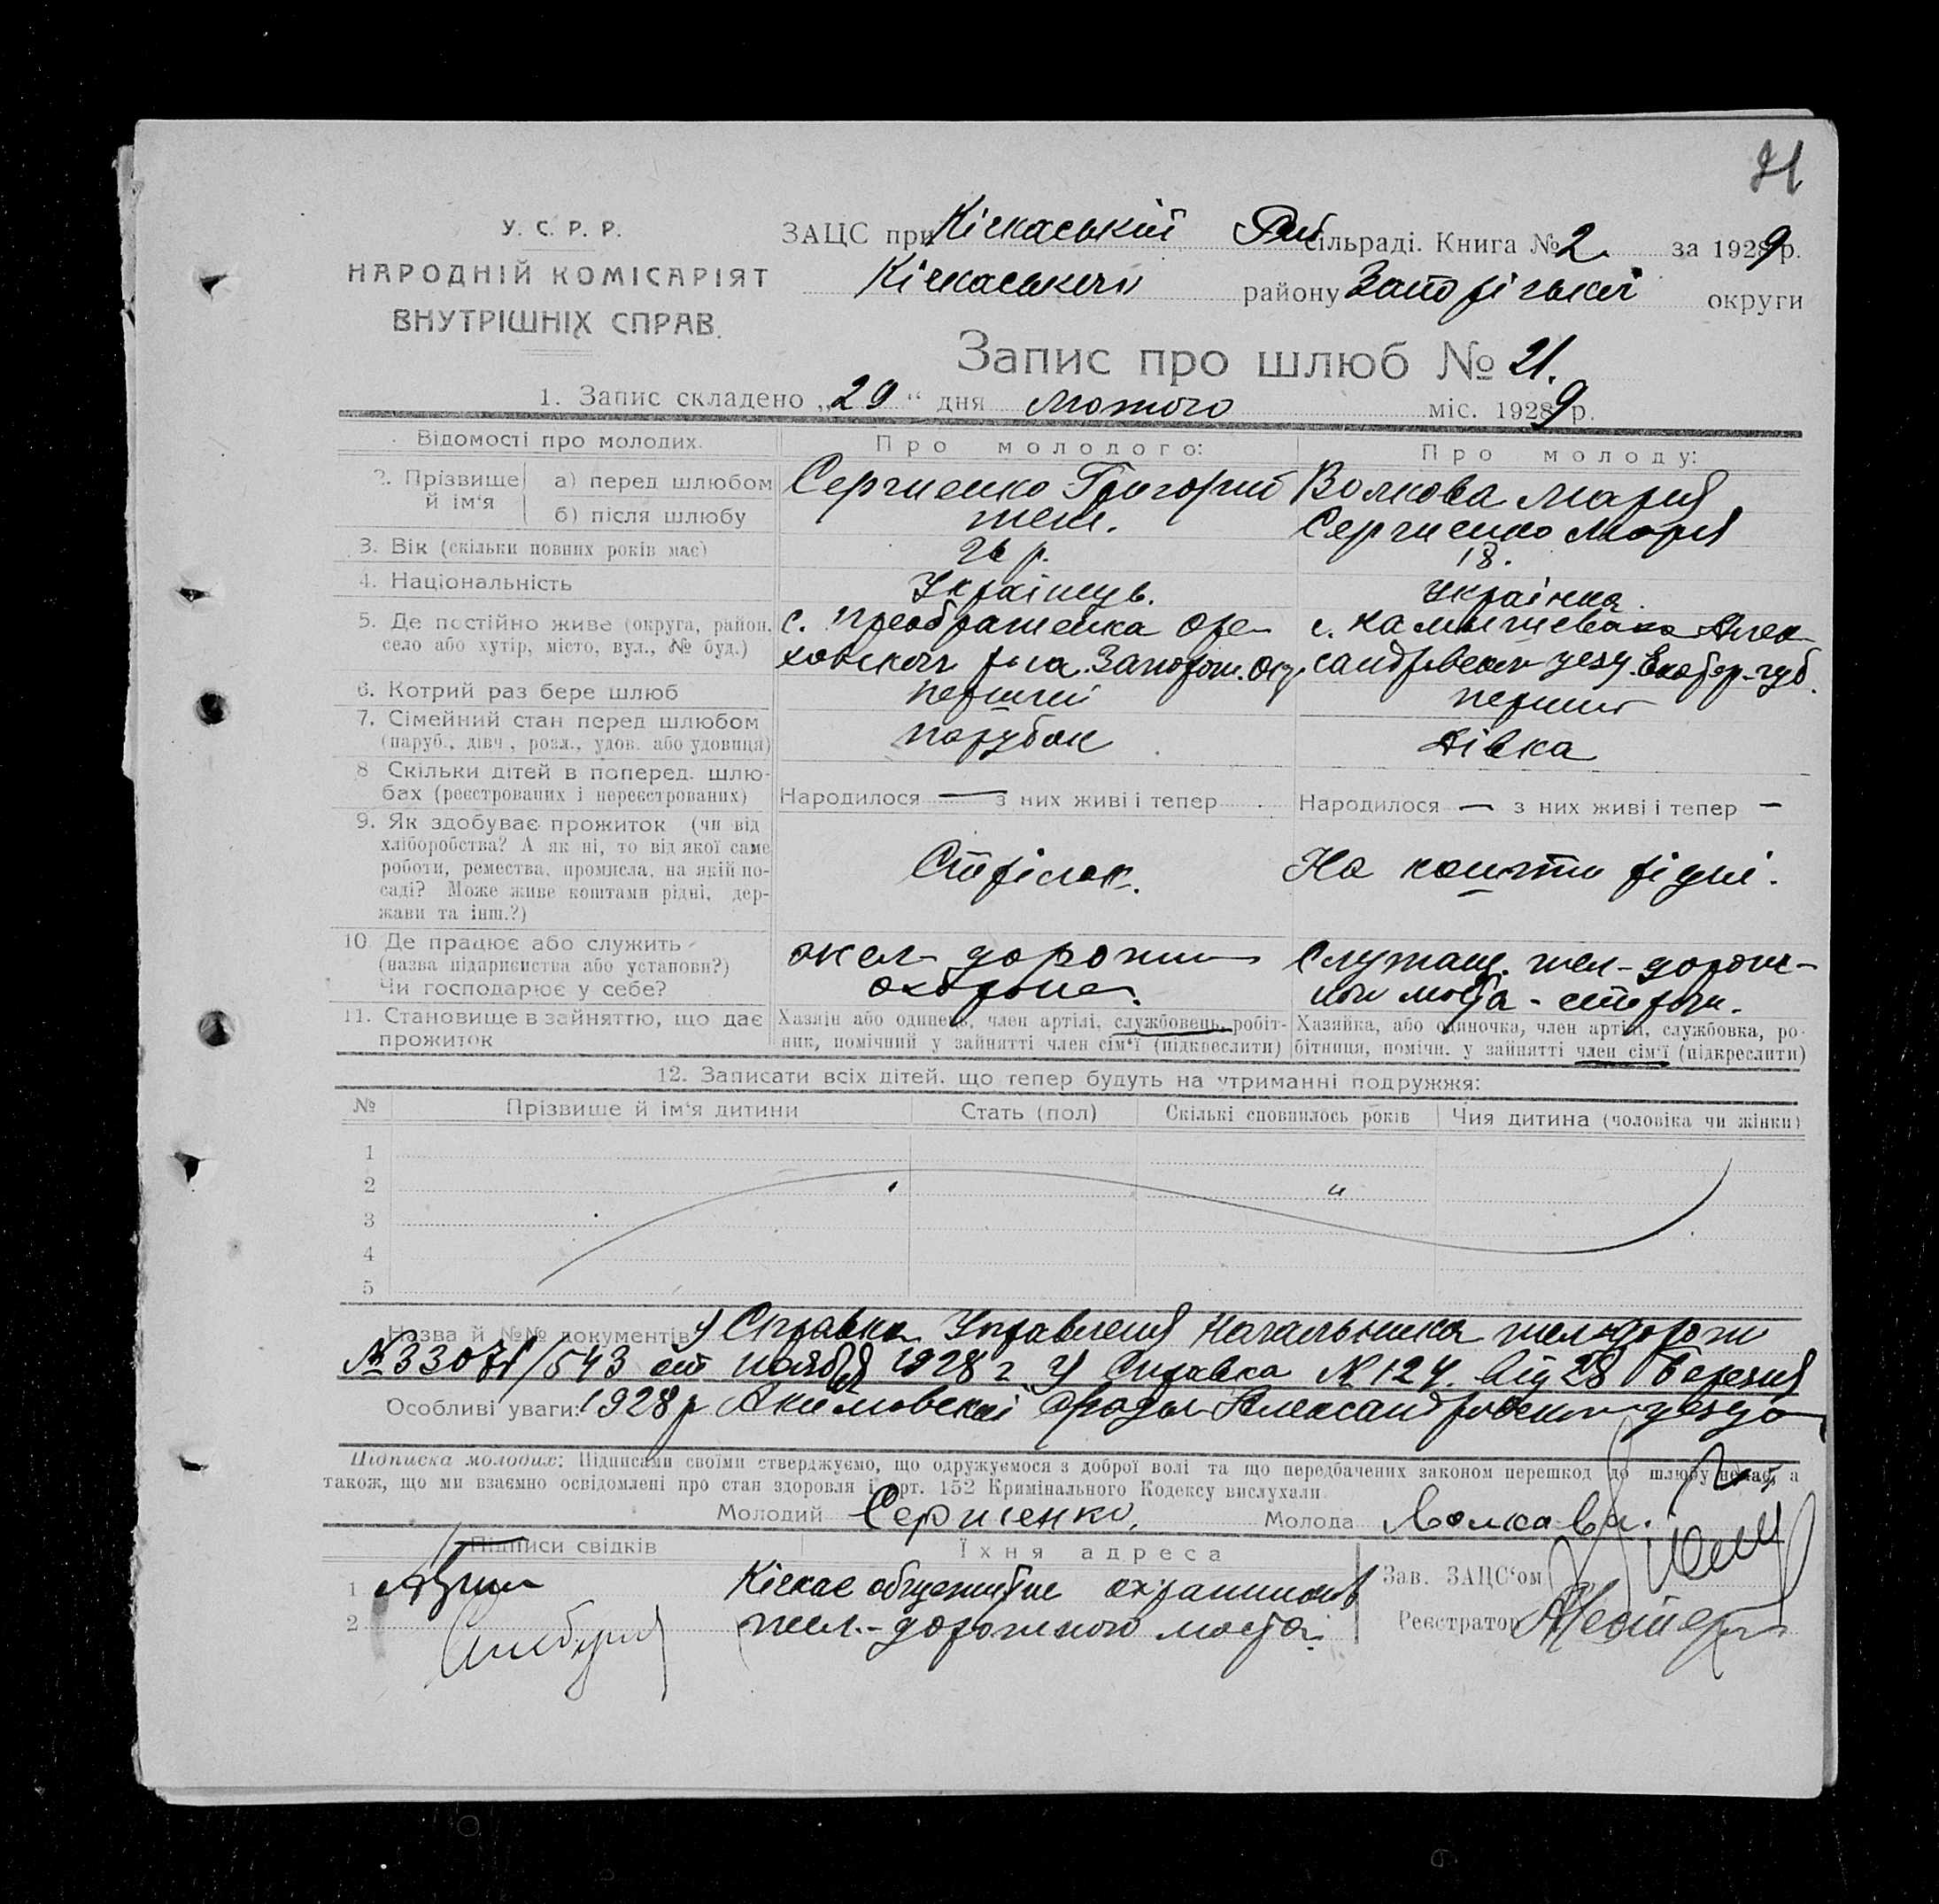 21
У. С. Р. Р.
НАРОДНІЙ КОМІСАРІЯТ
ВНУТРІШНІХ СПРАВ.
ЗАЦС при Кічкаській сільраді. Книга № 2. за 1928 9 р.
Кічкаського району Запорізької округи
Запис про шлюб № 21.
1. Запис складено „29“ дня Лютого міс. 1928 9 р.
Відомості про молодих. Про молодого: Про молоду:
2. Прізвище й ім‘я а) перед шлюбом Сергиенко Григорий Волкова Мария
б) після шлюбу теж. Сергиенко Мария
3. Вік (скільки повних років має) 26 р. 18.
4. Національність Українець. Українка.
5. Де постійно живе (округа, район, с. Преображенка Оре- с. Камышеваха Алек-
село або хутір, місто, вул., № буд.) ховского р-на Запорож. Окр. сандровского уезд. Екатер-губ.
6. Котрий раз бере шлюб перший перший
7. Сімейний стан перед шлюбом парубок дівка
(паруб., дівч., розл., удов. або удовиця)
8 Скільки дітей в поперед. шлю-
бах (реєстрованих і нереєстрованих) Народилося — з них живі і тепер Народилося — з них живі і тепер —
9. Як здобуває прожиток (чи від
хліборобства? А як ні, то від якої саме
роботи, ремества, промисла, на якій по- Стрілок. На кошти рідні.
саді? Може живе коштами рідні, дер-
жави та інш.?)
10 Де працює або служить жел-дорожн Служащ. жел-дорож-
(назва підприємства або установи?) охорона. ного моста - сторож.
Чи господарює у себе?
11. Становище в зайняттю, що дає Хазяїн або одинець, член артілі, службовець, робіт- Хазяйка, або одиночка, член артілі, службовка, ро-
прожиток ник, помічний у зайнятті член сім‘ї (підкреслити) бітниця, помічн. у зайнятті член сім‘ї (підкреслити)
12. Записати всіх дітей, що тепер будуть на утриманні подружжя:
№ Прізвище й ім‘я дитини Стать (пол) Скількі сповнилось років Чия дитина (чоловіка чи жінки)
1
2 "
3
4
5
Назва й №№ документів Справка Управления Начальника жел-дорож
№ 33071/543 от ноября 1928 г. Справка № 124. від 28 Березня
Особливі уваги: 1928 р Александровского уезда
Підписка молодих: Підписами своїми стверджуємо, що одружуємося з доброї волі та що передбачених законом перешкод до шлюбу немає, а
також, що ми взаємно освідомлені про стан здоровля і арт. 152 Кримінального Кодексу вислухали
Молодий Сергиенко, Молода Волкова
Підписи свідків Їхня адреса
1 Кічкас общежитие охранников Зав. ЗАЦС‘ом
2 жел.-дорожного моста. Реєстратор